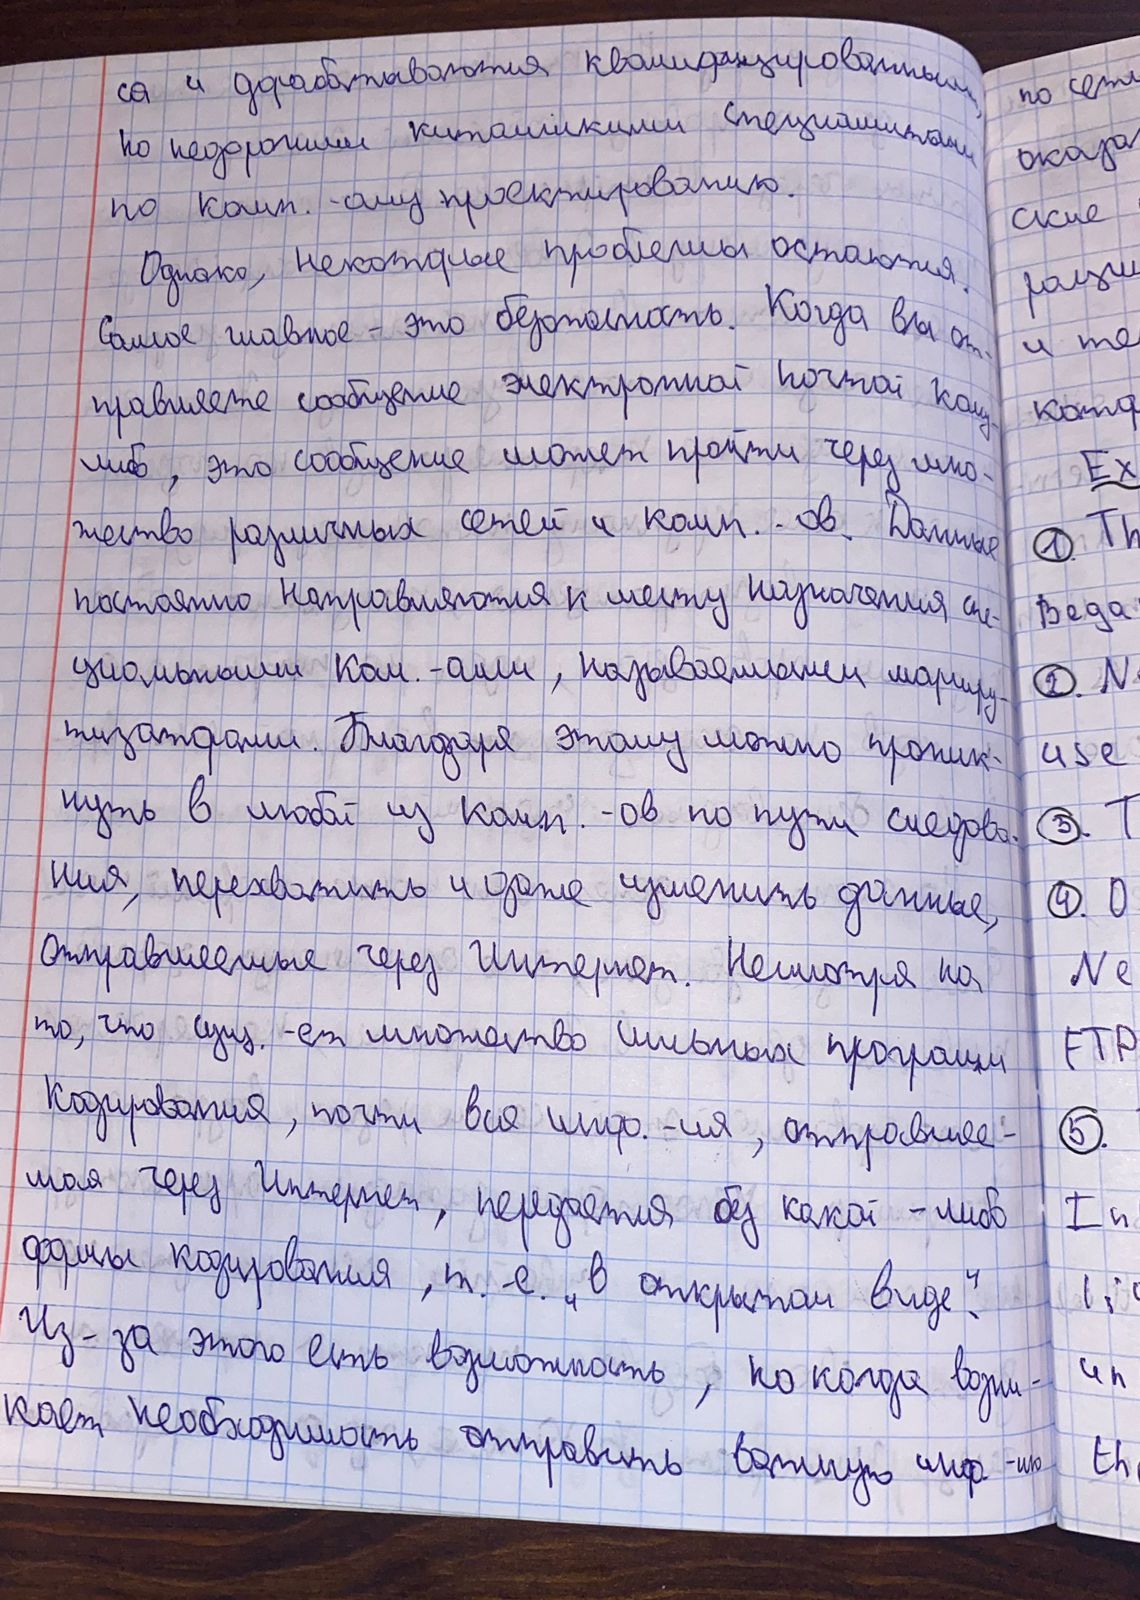 са и дорабатываются квалифицированными,
но недорогими китайскими специалистами
по комп. -ому проектированию.
Однако, некоторые проблемы остаются.
Самое главное - это безопасность. Когда вы от-
правляете сообщение электронной почтой кому-
либо, это сообщение может пройти через мно-
жество различных сетей и комп. -ов. Данные
постоянно направляются к месту назначения спе-
циальными ком. -ами, называемыми маршру-
тизаторами. Благодаря этому можно проник-
нуть в любой из комп. -ов по пути следова-
ния, перехватить и даже изменить данные,
отправляемые через Интернет. Несмотря на
то, что сущ. -ет множество сильных программ
кодирования, почти вся инфо. -ия, отправляе-
мая через Интернет, передается без какой-либо
формы кодирования, т. -е. „в открытом виде".
Из-за этого есть возможность, но когда возни-
кает необходимость отправить важную инфо -ию
по сети
оказа
ские
и те
кото
Ex
① Th
Веда
② N
use
③. T
④. O
Ne
FTP
⑤.
In
un